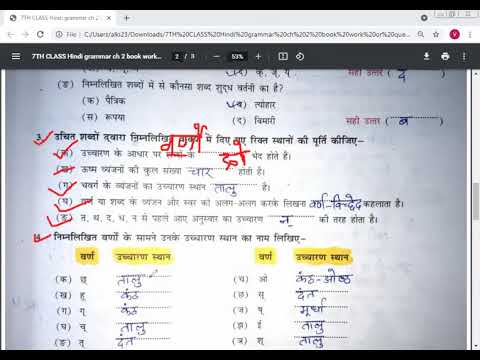 7TH CLASS Hindi grammar ch 2 book work...
C:/Users/alki23/Downloads/7TH%20CLASS%20Hindi%20grammar%20ch%202%20book%20work%20or%20que...
7TH CLASS Hindi grammar ch 2 book work...
2 / 3
53%
सही उत्तर ( द )
(ङ) निम्नलिखित शब्दों में से कौनसा शब्द शुद्ध वर्तनी का है?
(क) पैत्रिक
(ब) त्योहार
(स) रूपया
(द) बिमारी
सही उत्तर ( ब )
3. उचित शब्दों द्वारा निम्नलिखित वाक्यों में दिए गए रिक्त स्थानों की पूर्ति कीजिए–
वर्णों
(क) उच्चारण के आधार पर वर्णों के दो भेद होते हैं।
(ख) ऊष्म व्यंजनों की कुल संख्या चार होती है।
(ग) चवर्ग के व्यंजनों का उच्चारण स्थान तालु है।
(घ) वर्ण या शब्द के व्यंजन और स्वर को अलग-अलग करके लिखना वर्ण-विच्छेद कहलाता है।
(ङ) त, थ, द, ध, न से पहले आए अनुस्वार का उच्चारण न् की तरह होता है।
4. निम्नलिखित वर्णों के सामने उनके उच्चारण स्थान का नाम लिखिए–
वर्ण उच्चारण स्थान वर्ण उच्चारण स्थान
(क) छ् तालु (च) ओ कंठ-ओष्ठ
(ख) ह् कंठ (छ) स् दंत
(ग) ग् कंठ (ज) ष् मूर्धा
(घ) च् तालु (झ) ई तालु
(ङ) त् दंत (ञ) श् तालु